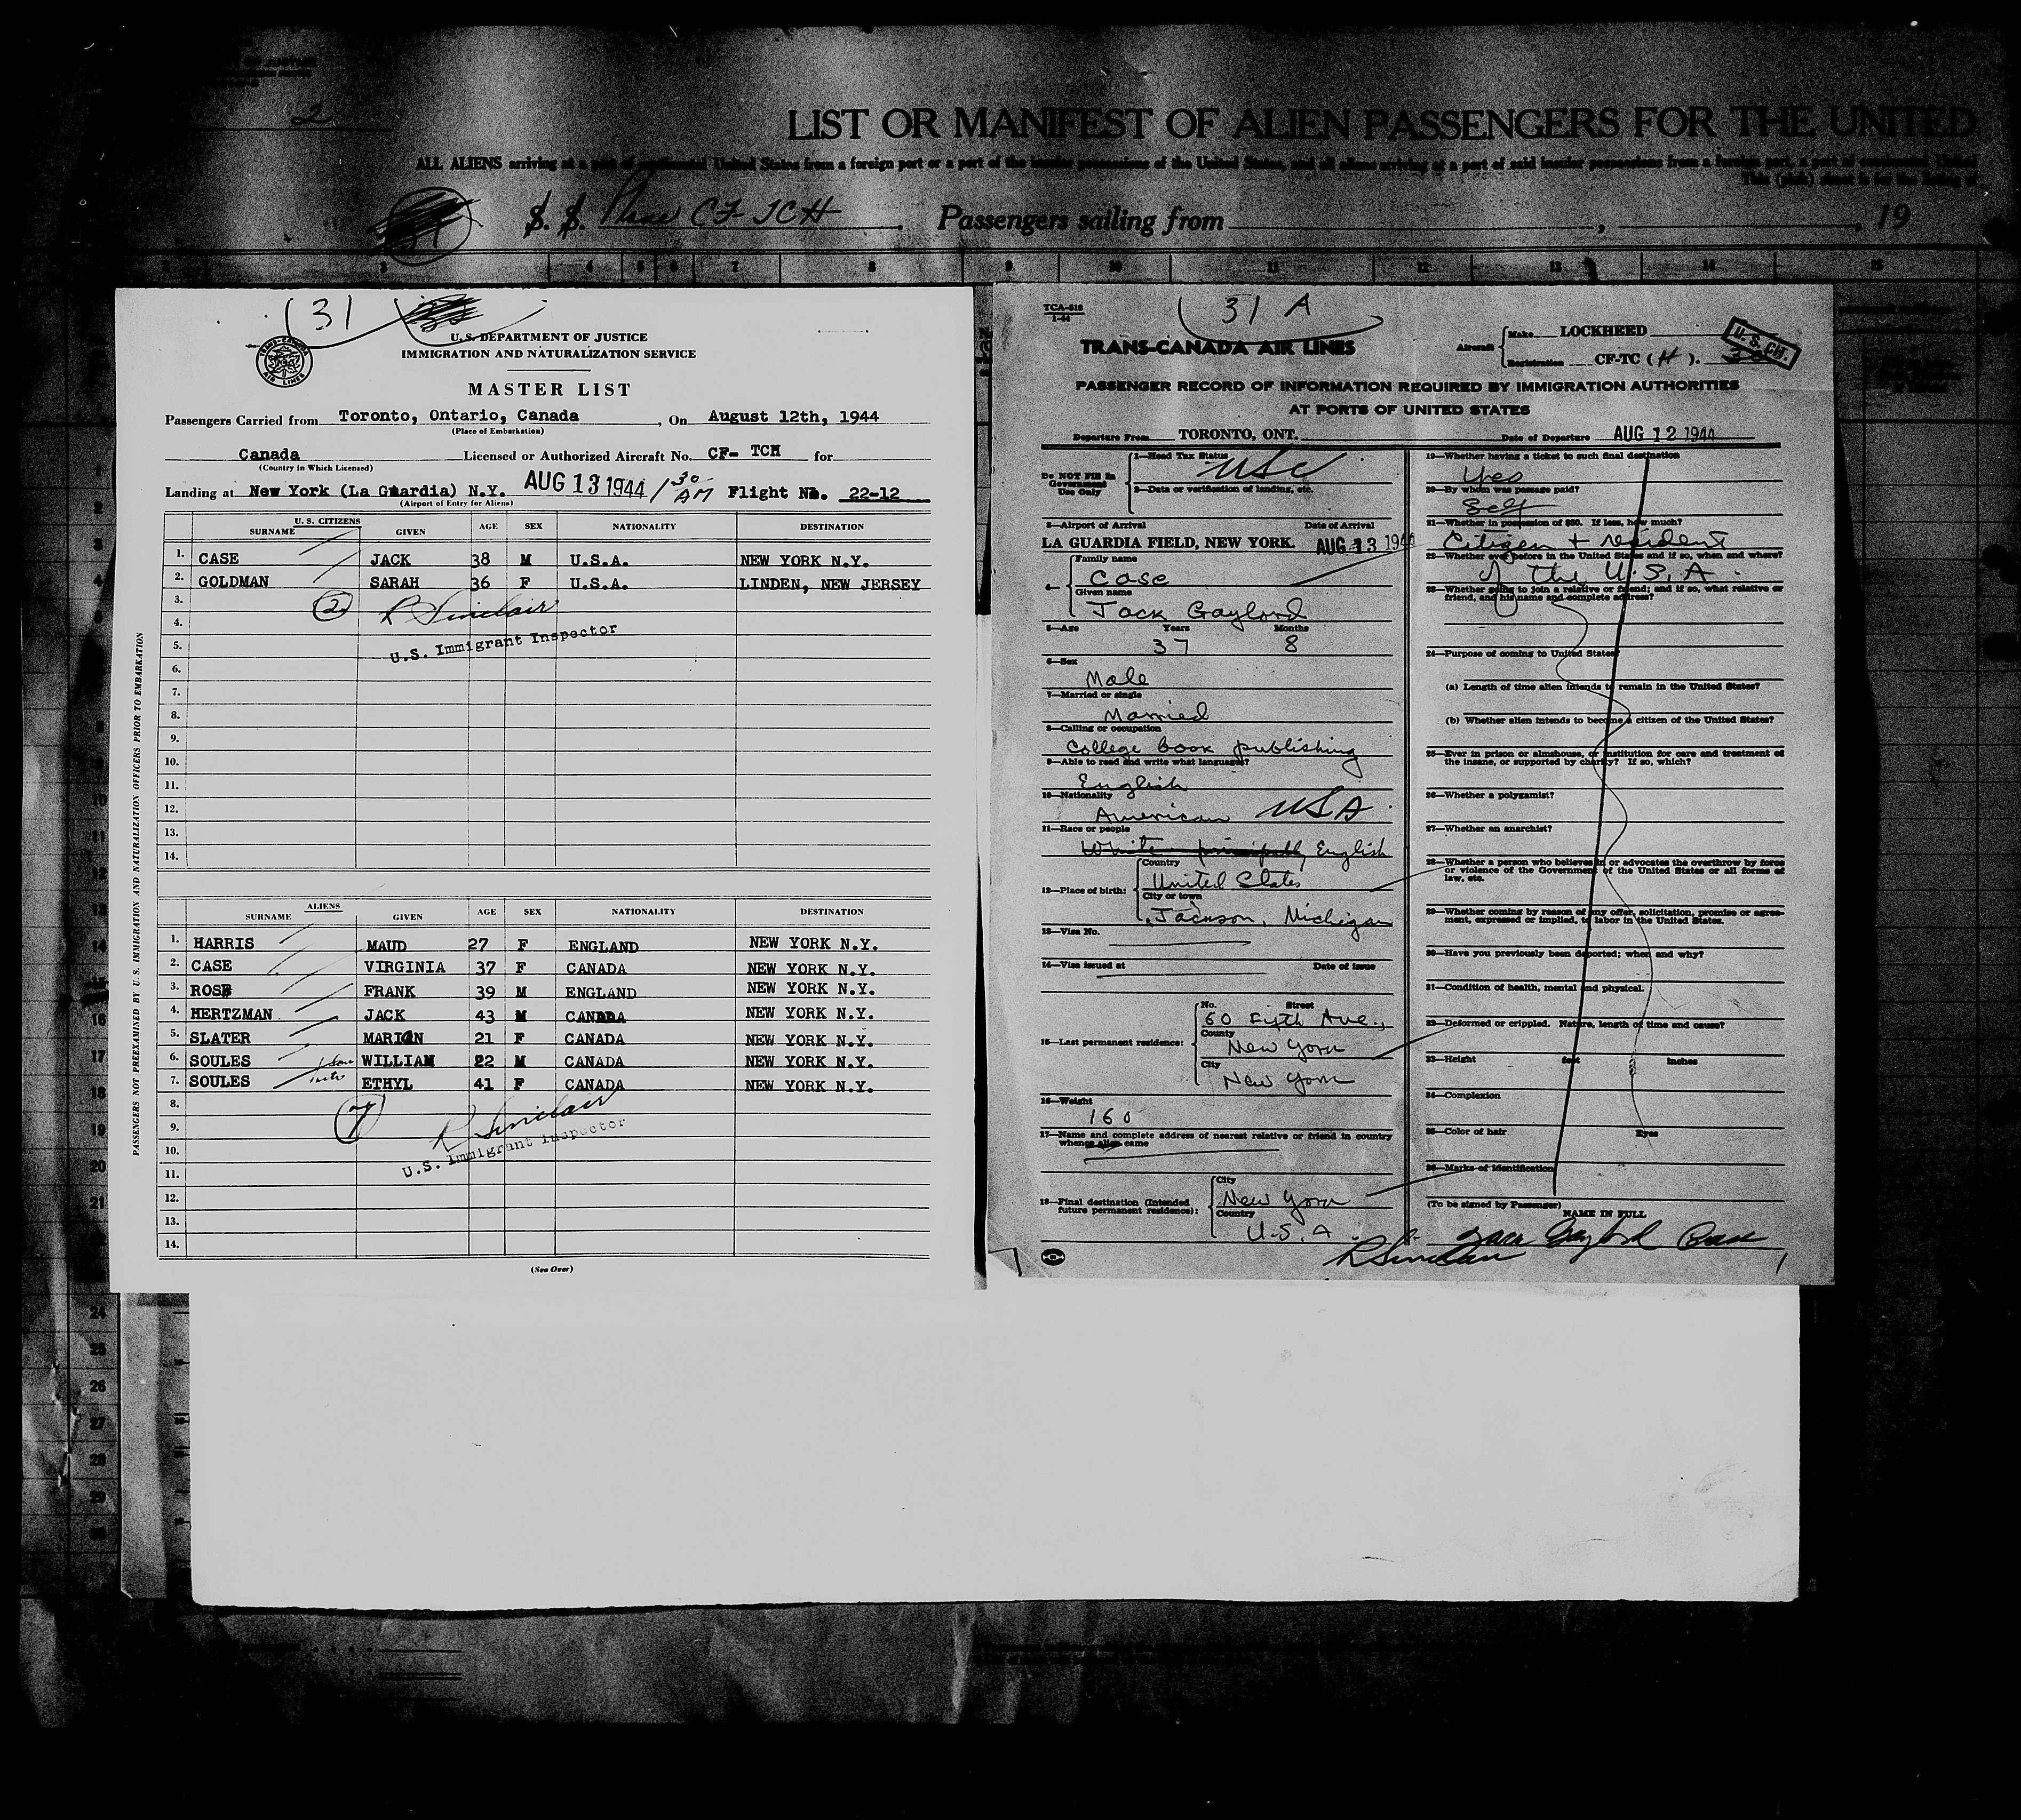 2
LIST OR MANIFEST OF ALIEN PASSENGERS FOR THE UNITED
ALL ALIENS arriving at a port of continental United States from a foreign port or a port of the insular possessions of the United States, and all aliens arriving at a port of said insular possessions from a foreign port, a port of continental United
S. S. Plane CF-TCH. Passengers sailing from , , 19
3 4 5 6 7 8 9 10 11 12 13 14 15
(31)
U.S. DEPARTMENT OF JUSTICE
IMMIGRATION AND NATURALIZATION SERVICE
TRANS-CANADA AIR LINES
MASTER LIST
Passengers Carried from Toronto, Ontario, Canada, On August 12th, 1944
(Place of Embarkation)
Canada Licensed or Authorized Aircraft No. CF- TCH for
(Country in Which Licensed)
Landing at New York (La Guardia) N.Y. AUG 13 1944 1 30 AM Flight No. 22-12
(Airport of Entry for Aliens)
U. S. CITIZENS
SURNAME GIVEN AGE SEX NATIONALITY DESTINATION
1. CASE JACK 38 M U.S.A. NEW YORK N.Y.
2. GOLDMAN SARAH 36 F U.S.A. LINDEN, NEW JERSEY
3. (2) R Sinclair
4.
5. U.S. Immigrant Inspector
6.
7.
8.
9.
10.
11.
12.
13.
14.
ALIENS
SURNAME GIVEN AGE SEX NATIONALITY DESTINATION
1. HARRIS MAUD 27 F ENGLAND NEW YORK N.Y.
2. CASE VIRGINIA 37 F CANADA NEW YORK N.Y.
3. ROSE FRANK 39 M ENGLAND NEW YORK N.Y.
4. HERTZMAN JACK 43 M CANADA NEW YORK N.Y.
5. SLATER MARION 21 F CANADA NEW YORK N.Y.
6. SOULES WILLIAM 22 M CANADA NEW YORK N.Y.
7. SOULES ETHYL 41 F CANADA NEW YORK N.Y.
8. (7)
9. R Sinclair
10. U.S. Immigrant Inspector
11.
12.
13.
14.
(See Over)
PASSENGERS NOT PREEXAMINED BY U.S. IMMIGRATION AND NATURALIZATION OFFICERS PRIOR TO EMBARKATION
TCA-518
1-44
31 A
TRANS-CANADA AIR LINES
Aircraft Make LOCKHEED
Registration CF-TC (H).
U. S. CH.
PASSENGER RECORD OF INFORMATION REQUIRED BY IMMIGRATION AUTHORITIES
AT PORTS OF UNITED STATES
Departure From TORONTO, ONT. Date of Departure AUG 12 1944
Do NOT Fill In
Government
Use Only
1—Head Tax Status
USC
2—Data or verification of landing, etc.
3—Airport of Arrival Date of Arrival
LA GUARDIA FIELD, NEW YORK. AUG 13 1944
4—
Family name
Case
Given name
Jack Gaylord
5—Age Years Months
37 8
6—Sex
Male
7—Married or single
Married
8—Calling or occupation
College book publishing
9—Able to read and write what languages?
English
10—Nationality
American USA
11—Race or people
White principally English
12—Place of birth:
Country
United States
City or town
Jackson, Michigan
13—Visa No.
14—Visa issued at Date of issue
15—Last permanent residence:
No. Street
60 Fifth Ave.,
County
New York
City
New York
16—Weight
160
17—Name and complete address of nearest relative or friend in country
whence alien came
18—Final destination (Intended
future permanent residence):
City
New York
Country
U.S.A.
19—Whether having a ticket to such final destination
Yes
20—By whom was passage paid?
Self
21—Whether in possession of $50. If less, how much?
Citizen + resident
22—Whether ever before in the United States and if so, when and where?
of the U.S.A.
23—Whether going to join a relative or friend; and if so, what relative or
friend, and his name and complete address?
24—Purpose of coming to United States?
(a) Length of time alien intends to remain in the United States?
(b) Whether alien intends to become a citizen of the United States?
25—Ever in prison or almshouse, or institution for care and treatment of
the insane, or supported by charity? If so, which?
26—Whether a polygamist?
27—Whether an anarchist?
28—Whether a person who believes in or advocates the overthrow by force
or violence of the Government of the United States or all forms of
law, etc.
29—Whether coming by reason of any offer, solicitation, promise or agree-
ment, expressed or implied, to labor in the United States.
30—Have you previously been deported; when and why?
31—Condition of health, mental and physical.
32—Deformed or crippled. Nature, length of time and cause?
33—Height feet inches
34—Complexion
35—Color of hair Eyes
36—Marks of identification
(To be signed by Passenger)
NAME IN FULL
Jack Gaylord Case
R Sinclair